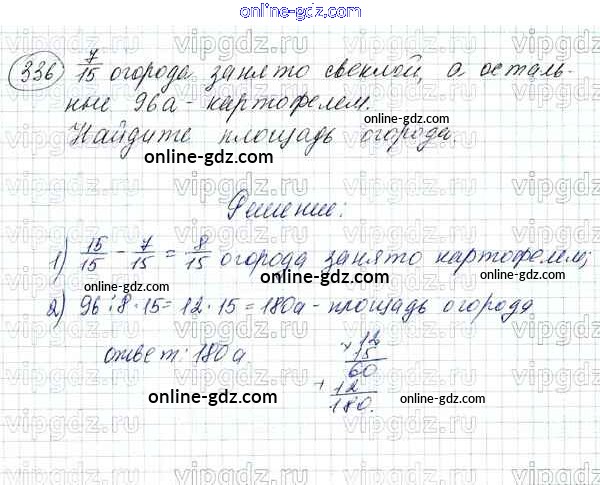 online-gdz.com
336 7/15 огорода занято свеклой, а осталь-
ные 96а - картофелем.
Найдите площадь огорода.
online-gdz.com
online-gdz.com
Решение:
online-gdz.com
1) 15/15 - 7/15 = 8/15 огорода занято картофелем;
2) 96:8·15=12·15=180а - площадь огорода
online-gdz.com
ответ: 180а.
× 12
15
60
+ 12
180.
online-gdz.com
online-gdz.com
vipgdz.ru